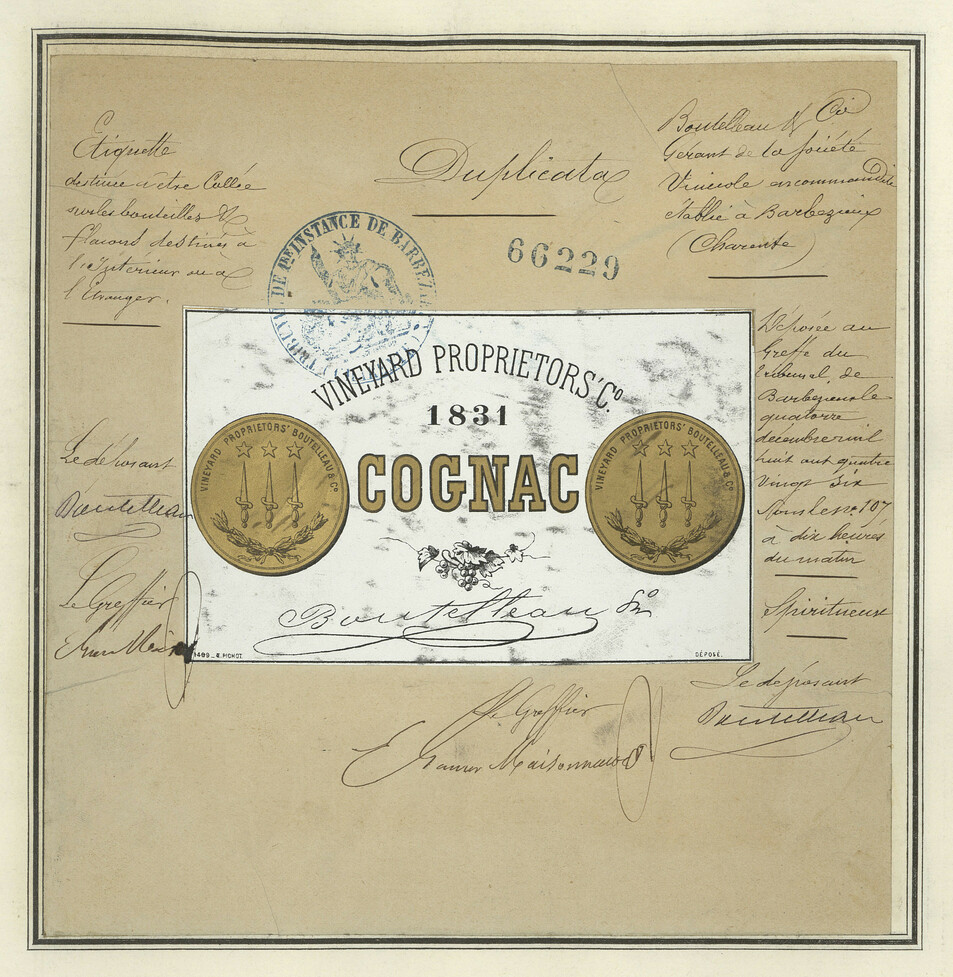 Etiquette
destinée a etre Collée
sur les bouteilles &
flacons destinés à
l'Intérieur ou à
l'Etranger.
Duplicata
66229
Boutelleau & Cie
Gérant de la Société
Vinicole en commandite
établie à Barbezieux
(Charente)
TRIBUNAL DE 1ERE INSTANCE DE BARBEZIEUX
VINEYARD PROPRIETORS' Co.
1831
COGNAC
VINEYARD PROPRIETORS' BOUTELLEAU & Co
VINEYARD PROPRIETORS' BOUTELLEAU & Co
Boutelleau
E. PICHOT.
DÉPOSÉ.
Le déposant
Boutelleau
Le Greffier
Déposée au
Greffe du
tribunal de
Barbezieux le
quatorze
décembre mil
huit cent quatre
vingt six
Sous le no 107
à dix heures
du matin
Spiritueux
Le déposant
Boutelleau
Le Greffier